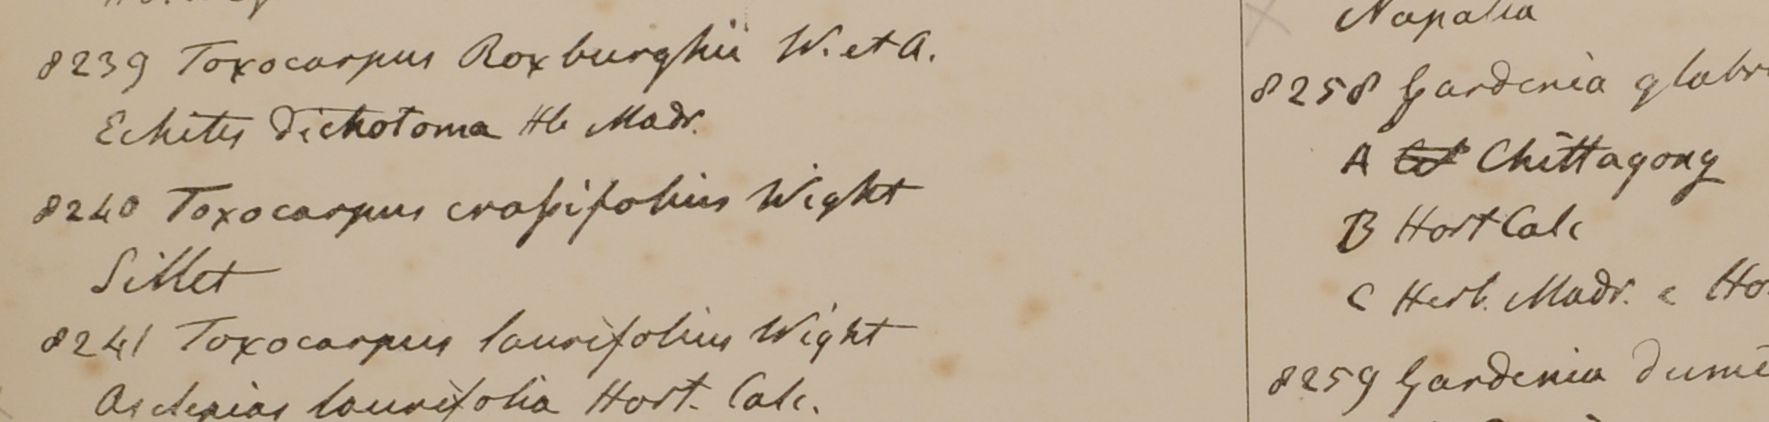 8239 Toxocarpus Roxburghii W. et A.
Echites dichotoma Hb Madr.
8240 Toxocarpus crassifolius Wight
Sillet
8241 Toxocarpus laurifolius Wight
Asclepias laurifolia Hort. Calc.
Napalia
8258 Gardenia glabr
A Chittagong
B Hort Calc
C Herb. Madr. e Ho
8259 Gardenia dume